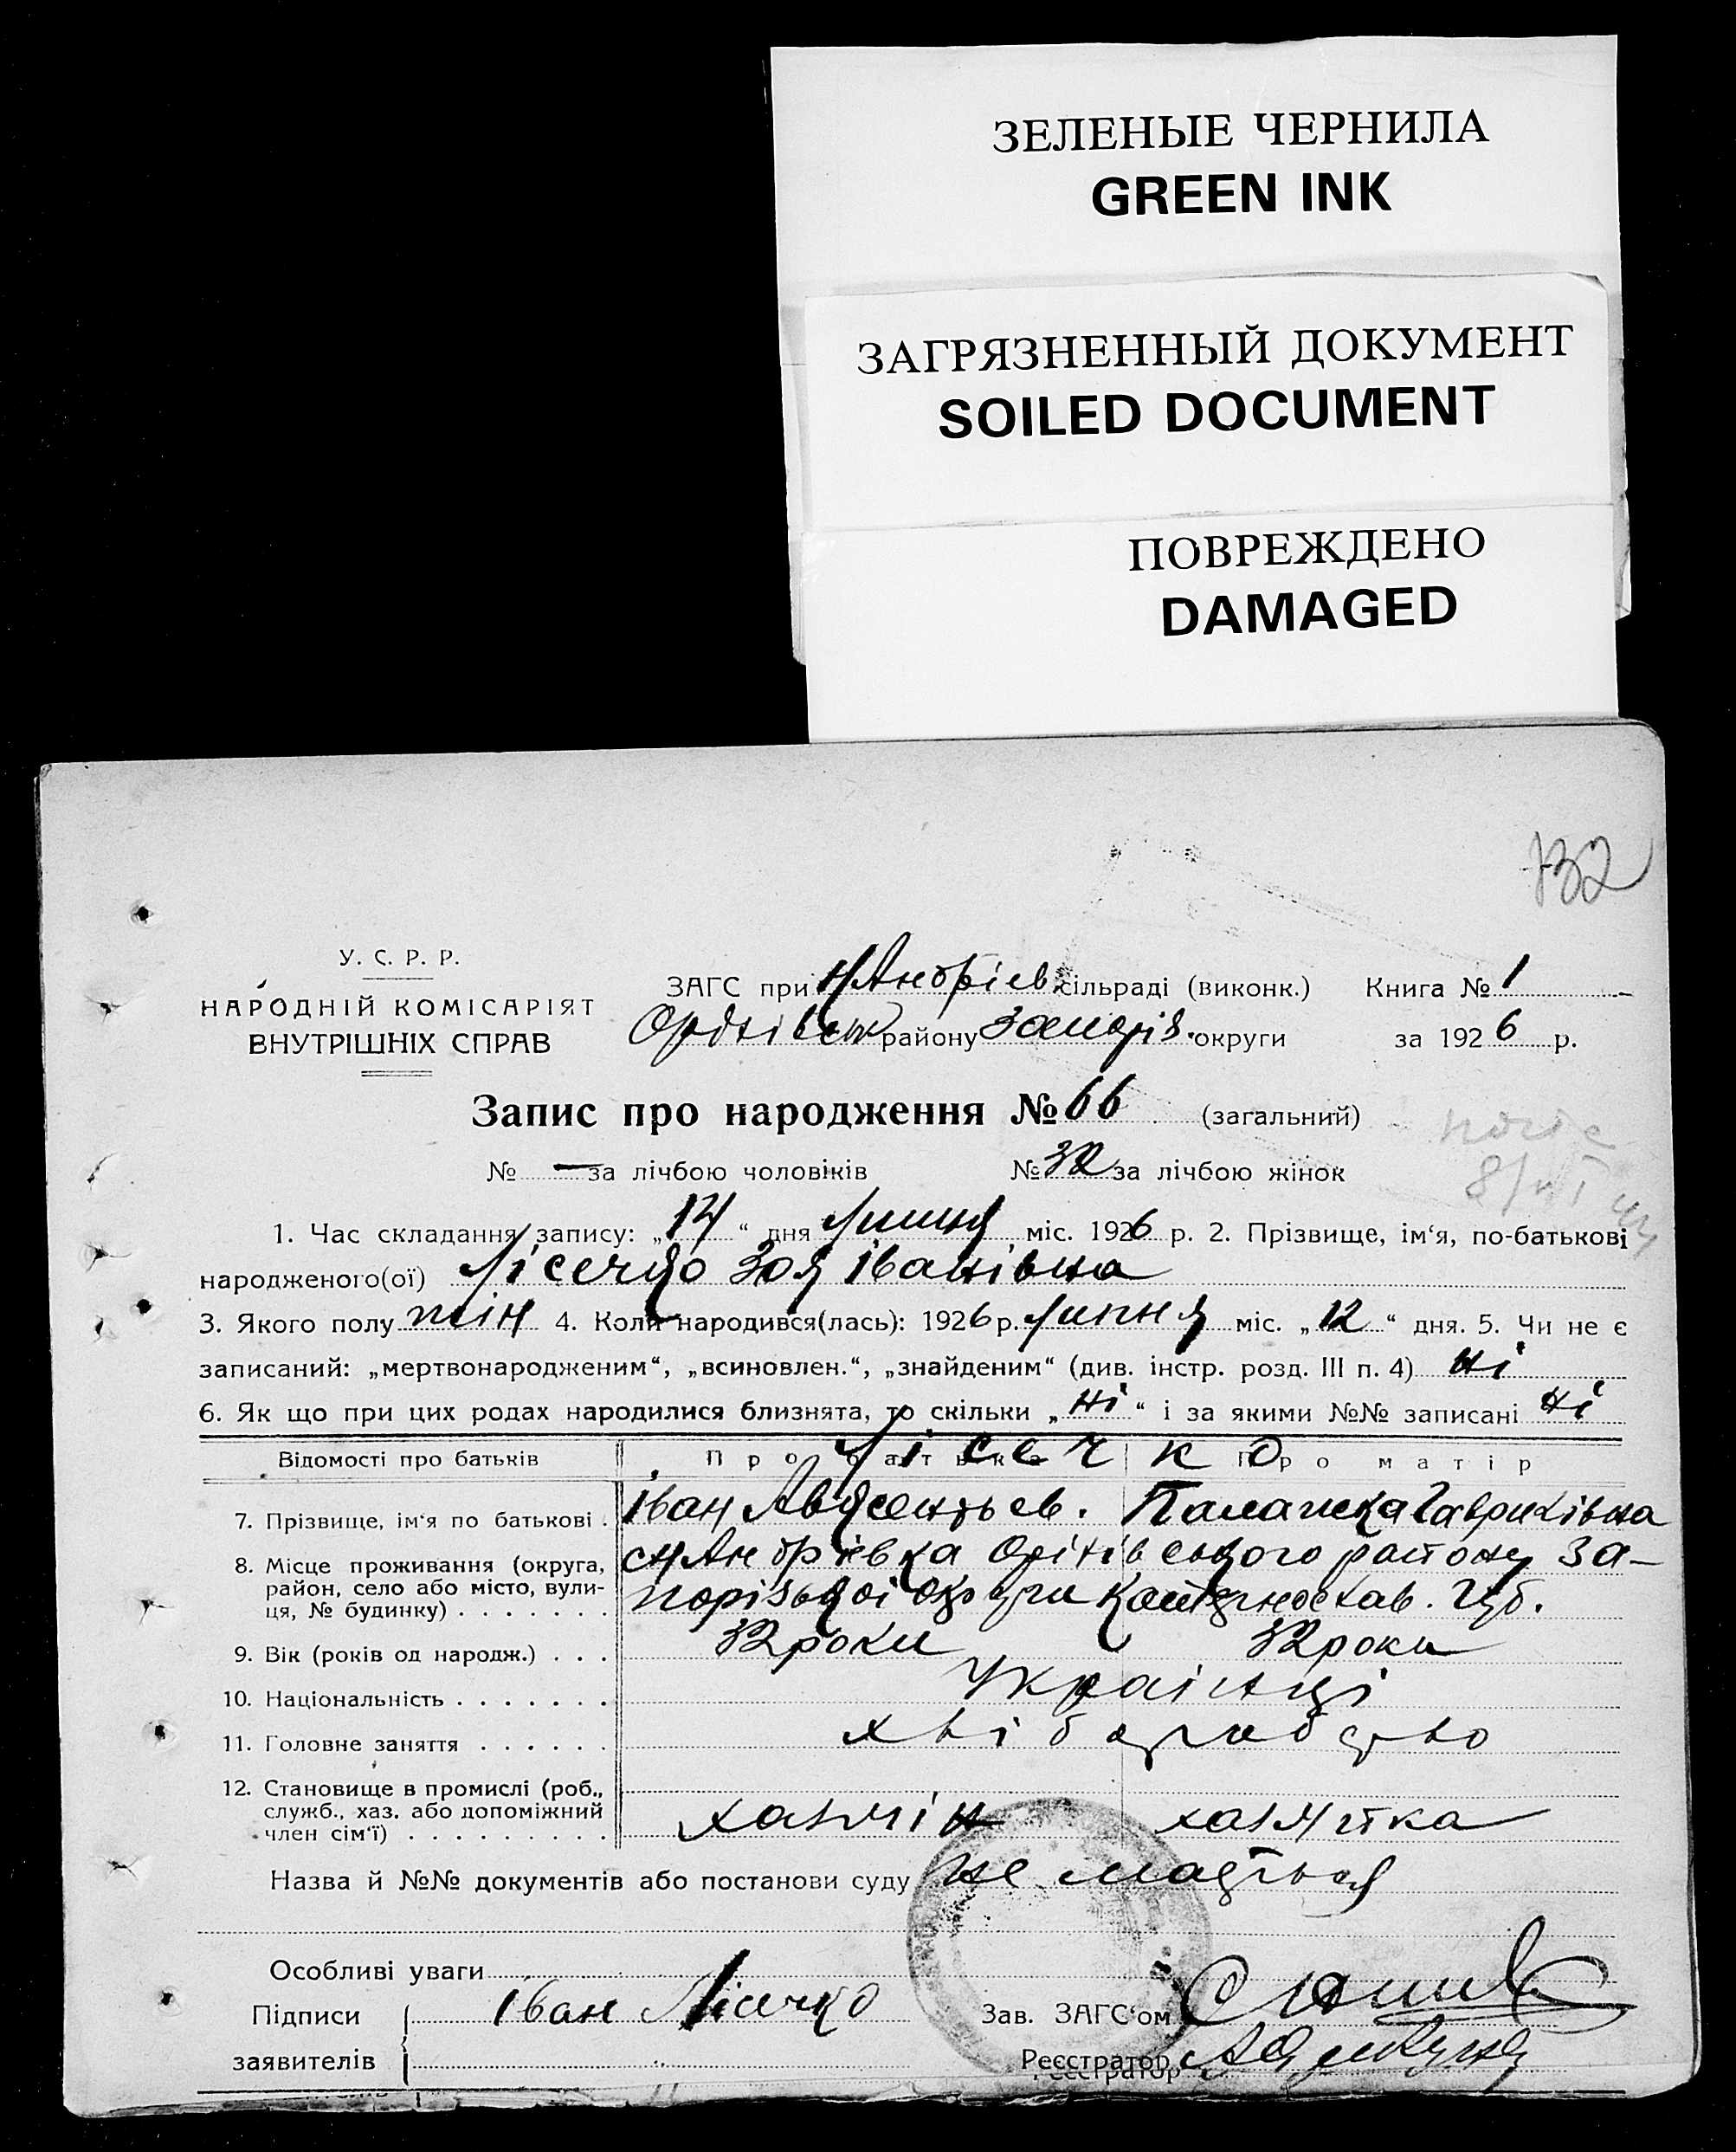 ЗЕЛЕНЫЕ ЧЕРНИЛА
GREEN INK
ЗАГРЯЗНЕННЫЙ ДОКУМЕНТ
SOILED DOCUMENT
ПОВРЕЖДЕНО
DAMAGED
132
У. С. Р. Р.
НАРОДНІЙ КОМІСАРІЯТ
ВНУТРІШНІХ СПРАВ
ЗАГС при Н Андріев. сільраді (виконк.) Книга № 1
району Запоріз. округи за 1926 р.
Запис про народження № 66 (загальний)
№ — за лічбою чоловіків № 32 за лічбою жінок
1. Час складання запису: „14“ дня липня міс. 1926 р. 2. Прізвище, ім‘я, по-батькові
народженого(ої) Лісечко Зоя Іванівна
3. Якого полу жін 4. Коли народився(лась): 1926 р. липня міс. „12“ дня. 5. Чи не є
записаний: „мертвонародженим“, „всиновлен.“, „знайденим“ (див. інстр. розд. III п. 4) ні
6. Як що при цих родах народилися близнята, то скільки „ні“ і за якими №№ записані ні
Відомості про батьків Про батька Про матір
Лісечко
7. Прізвище, ім‘я по батькові . Іван Авксентьев. Палажка Гаврилівна
8. Місце проживання (округа, район, село або місто, вулиця, № будинку) . . . . . . .
Н Андрівка Оріхівського району За-
порізької округи Катеринослав. Губ.
9. Вік (років од народж.) . . . 32 роки 32 роки
10. Національність . . . . . . . Українці
11. Головне заняття . . . . . . хліборобство
12. Становище в промислі (роб., служб., хаз. або допоміжний член сім‘ї) . . . . . . . . .
хазяін хазяйка
Назва й №№ документів або постанови суду не мається
Особливі уваги
Підписи заявителів Іван Лісечко
Зав. ЗАГС‘ом
Реєстратор